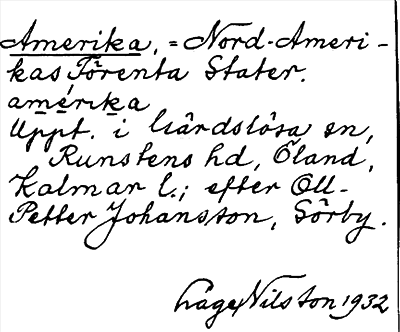 Amerika, = Nord-Ameri-
kas Förenta Stater.
amérika
Uppt. i Gårdslösa sn,
Runstens hd, Öland,
Kalmar l.; efter Oll-
Petter Johansson, Sörby.
Åge Nilston 1932